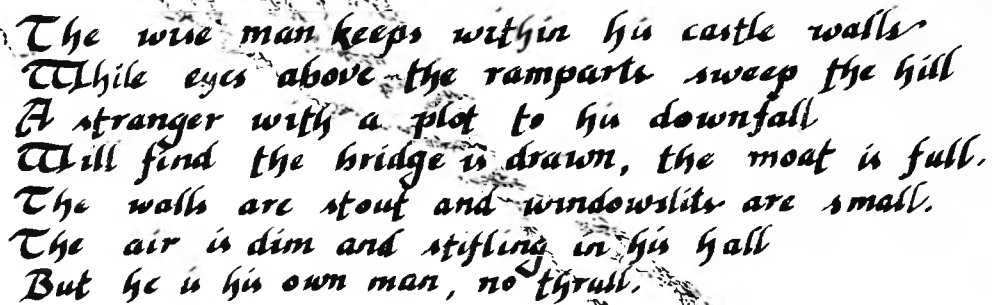 The wise man keeps within his castle walls
While eyes above the ramparts sweep the hill
A stranger with a plot to his downfall
Will find the bridge is drawn, the moat is full.
The walls are stout and windowslits are small.
The air is dim and stifling in his hall
But he is his own man, no thrall.